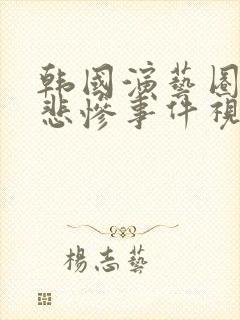 韩國演藝圈
悲慘事件視
楊志藝